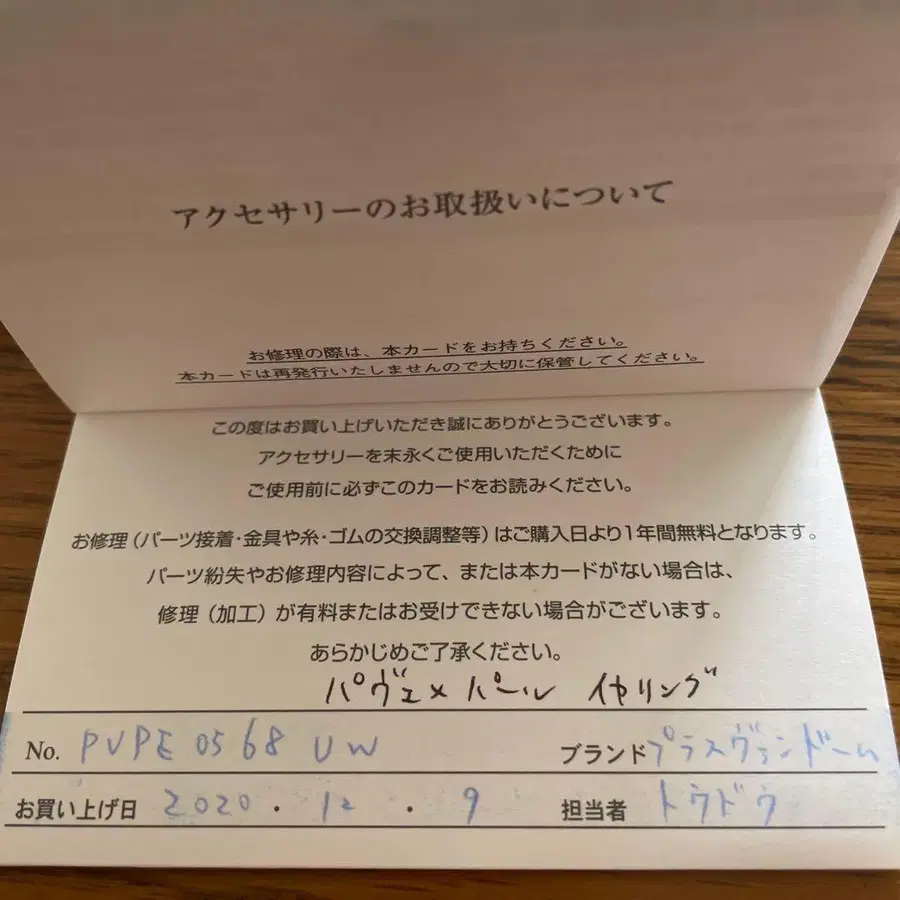 アクセサリーのお取扱いについて
お修理の際は、本カードをお持ちください。
本カードは再発行いたしませんので大切に保管してください。
この度はお買い上げいただき誠にありがとうございます。
アクセサリーを末永くご使用いただくために
ご使用前に必ずこのカードをお読みください。
お修理（パーツ接着・金具や糸・ゴムの交換調整等）はご購入日より1年間無料となります。
パーツ紛失やお修理内容によって、または本カードがない場合は、
修理（加工）が有料またはお受けできない場合がございます。
あらかじめご了承ください。
パヴェ×パール イヤリング
No. PVPE 0568 UW ブランド プラスヴァンドーム
お買い上げ日 2020・12・9 担当者 トウドウ